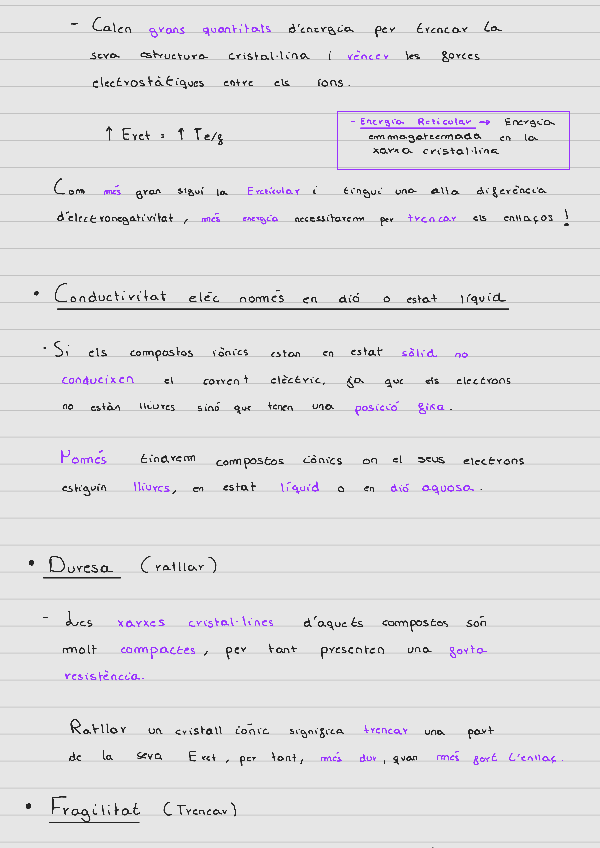 - Calen grans quantitats d'energia per trencar la
seva estructura cristal·lina i vèncer les forces
electrostàtiques entre els ions.
↑ Eret = ↑ Te/f
- Energia Reticular → Energia
emmagatzemada en la
xarxa cristal·lina
Com més gran sigui la Ereticular i tingui una alta diferència
d'electronegativitat, més energia necessitarem per trencar els enllaços!
• Conductivitat eléc només en dió o estat líquid
· Si els compostos iònics estan en estat sòlid no
condueixen el corrent elèctric, ja que els electrons
no estàn lliures sinó que tenen una posició fixa.
Només tindrem compostos iònics on el seus electrons
estiguin lliures, en estat líquid o en dió aquosa.
• Duresa (ratllar)
- Les xarxes cristal·lines d'aquets compostos són
molt compactes, per tant presenten una forta
resistència.
Ratllar un cristall iònic significa trencar una part
de la seva Eret, per tant, més dur, quan més fort l'enllaç.
• Fragilitat (Trencar)